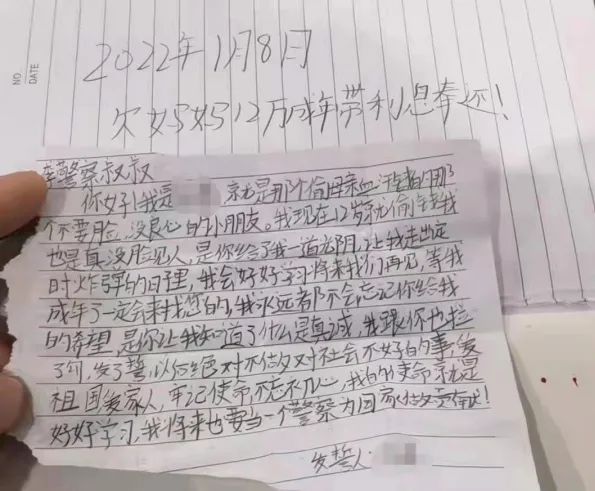 NO
DATE
2022年1月8日
欠妈妈12万成年带利息奉还!
李警察叔叔
你好!我是 就是那个偷母亲血汗钱的那
个不要脸,没良心的小朋友。我现在12岁就偷钱我
也是真没脸见人,是你给了我一道光阴,让我走出定
时炸弹的日理,我会好好学习将来我们再见,等我
成年了一定会来找您的,我永远都不会忘记你给我
的希望,是你让我知道了什么是真诚,我跟你也拉
了勾,发了誓以后绝对不做对社会不好的事,爱
祖国爱家人,牢记使命,不忘不心,我的使命就是
好好学习,我将来也要当一个警察为国家做贡献!
发誓人: